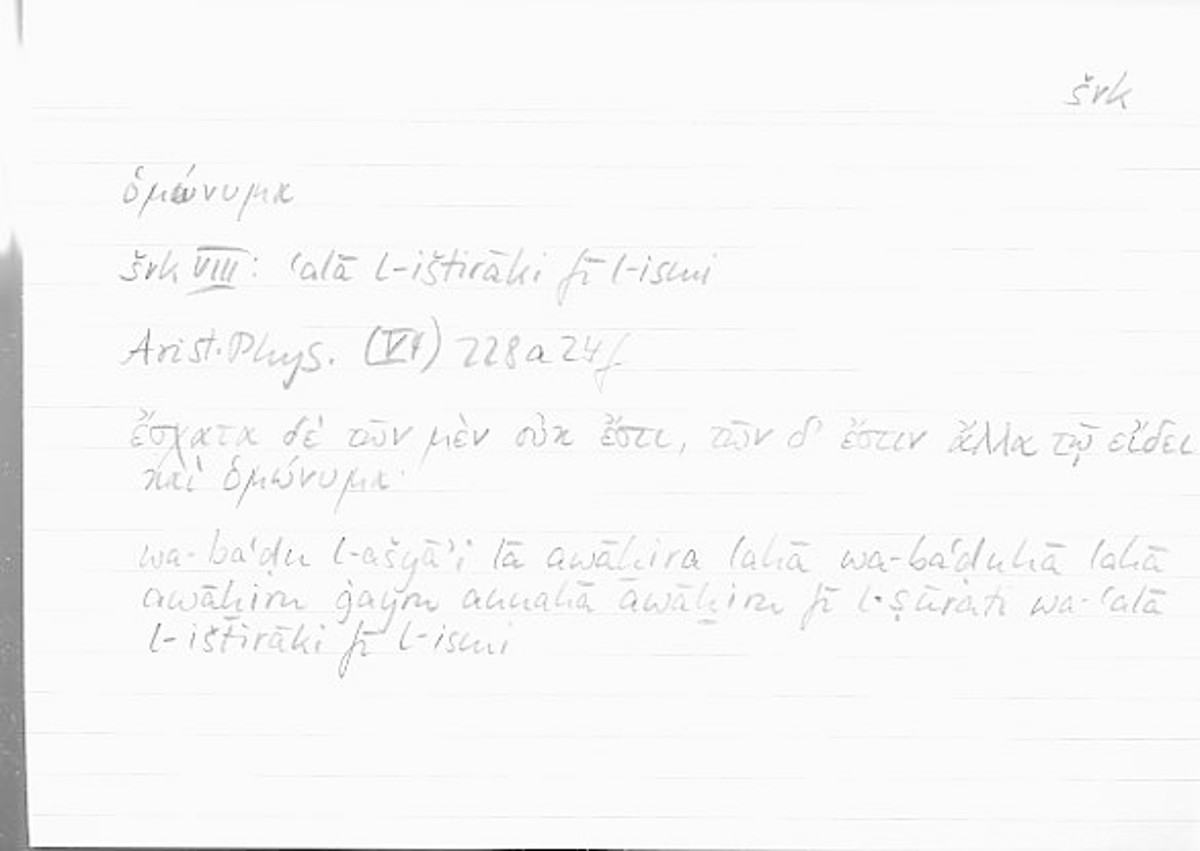 šrk
ὁμώνυμα
šrk VIII: ʿalā l-ištirāki fī l-ismi
Arist. Phys. (VI) 228a24f
ἔσχατα δέ τῶν μὲν οὐκ ἔστι, τῶν δ' ἔστιν ἄλλα τῷ εἴδει
καὶ ὁμώνυμα·
wa-baʿḍu l-ašyāʾi lā awāḫira lahā wa-baʿḍuhā lahā
awāḫiru ġayru annahā awāḫiru fī l-ṣūrati wa-ʿalā
l-ištirāki fī l-ismi